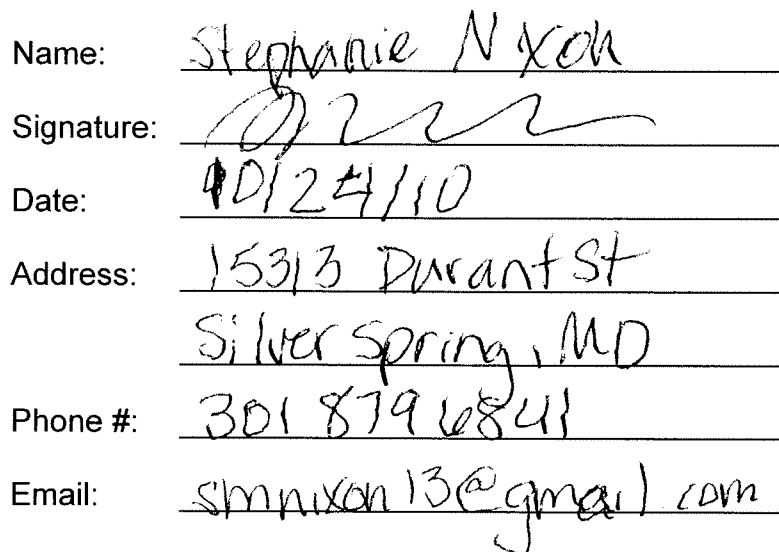 Name: Stephanie Nixon
Signature:
Date: 10/24/10
Address: 15313 Durant St
Silver Spring, MD
Phone #: 301 879 6841
Email: smnixon13@gmail.com